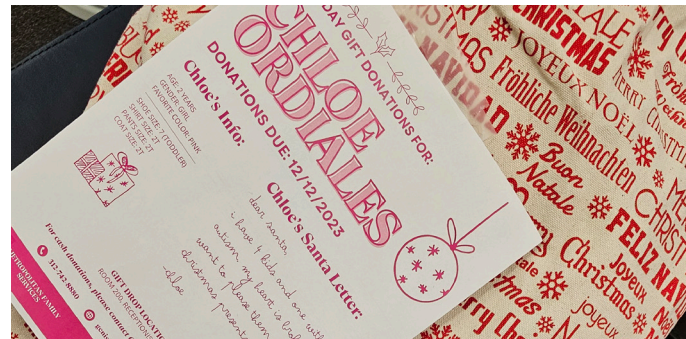 DAY GIFT DONATIONS FOR:
CHLOE
ORDIALES
DONATIONS DUE: 12/12/2023
Chloe's Info:
AGE: 2 YEARS
GENDER: GIRL
FAVORITE COLOR: PINK
SHOE SIZE: 7 (TODDLER)
SHIRT SIZE: 2T
PANTS SIZE: 2T
COAT SIZE: 2T
Chloe's Santa Letter:
dear santa,
i have 4 kids and one with
autism my heart is
want to please them
christmas presents
-chloe
GIFT DROP LOCATI
ROOM 200, RECEPTION
For cash donations, please contact
312-742-8880
METROPOLITAN FAMILY
SERVICES
CHRISTMAS
JOYEUX NOËL
Fröhliche Weihnachten
MERRY
CHRISTMAS
FELIZ NAVIDAD
Buon
Natale
CHRISTMAS
FELIZ NAVI
Christmas
Joyeux
Noël
joyeux